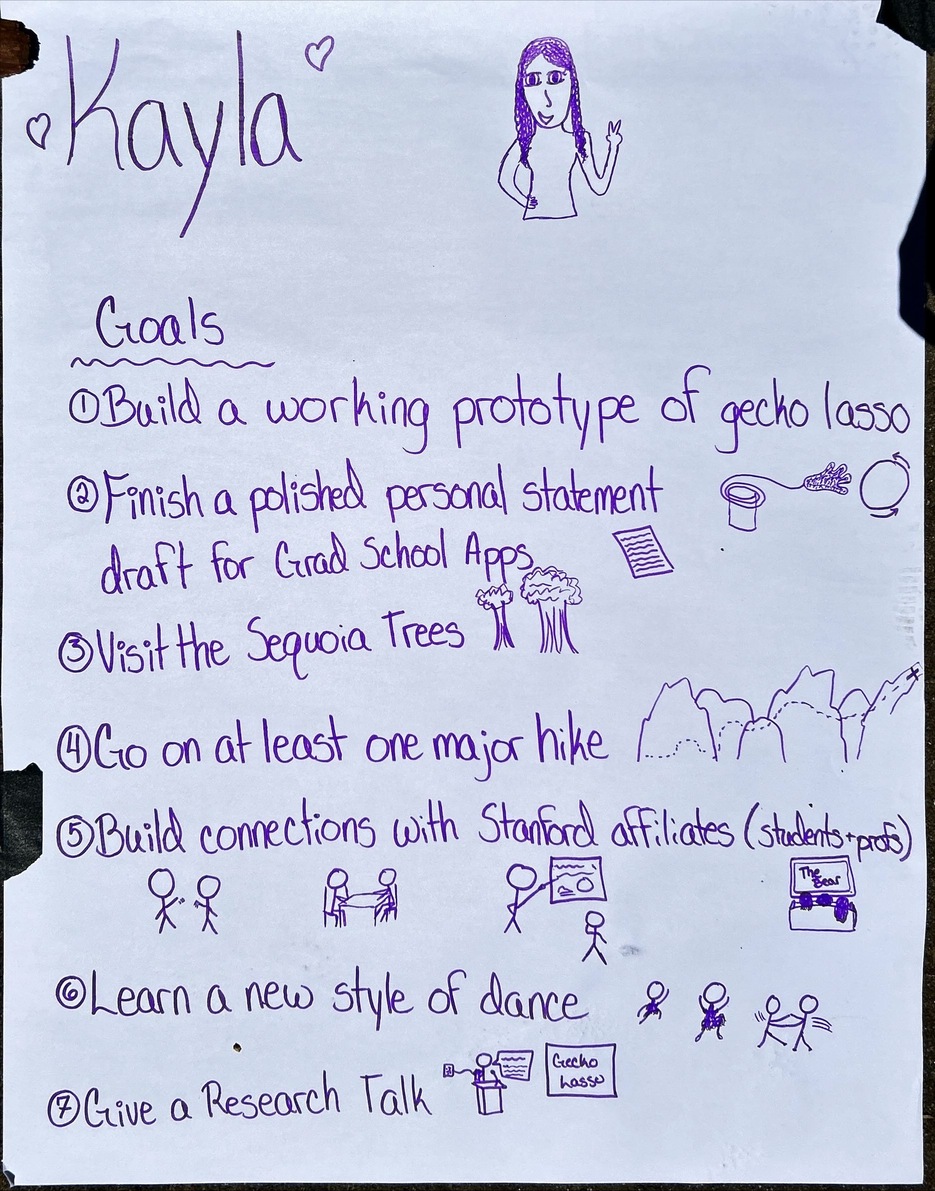 Kayla
Goals
① Build a working prototype of gecko lasso
② Finish a polished personal statement
draft for Grad School Apps
③ Visit the Sequoia Trees
④ Go on at least one major hike
⑤ Build connections with Stanford affiliates (students + profs)
The
Bear
⑥ Learn a new style of dance
⑦ Give a Research Talk
Gecko
Lasso